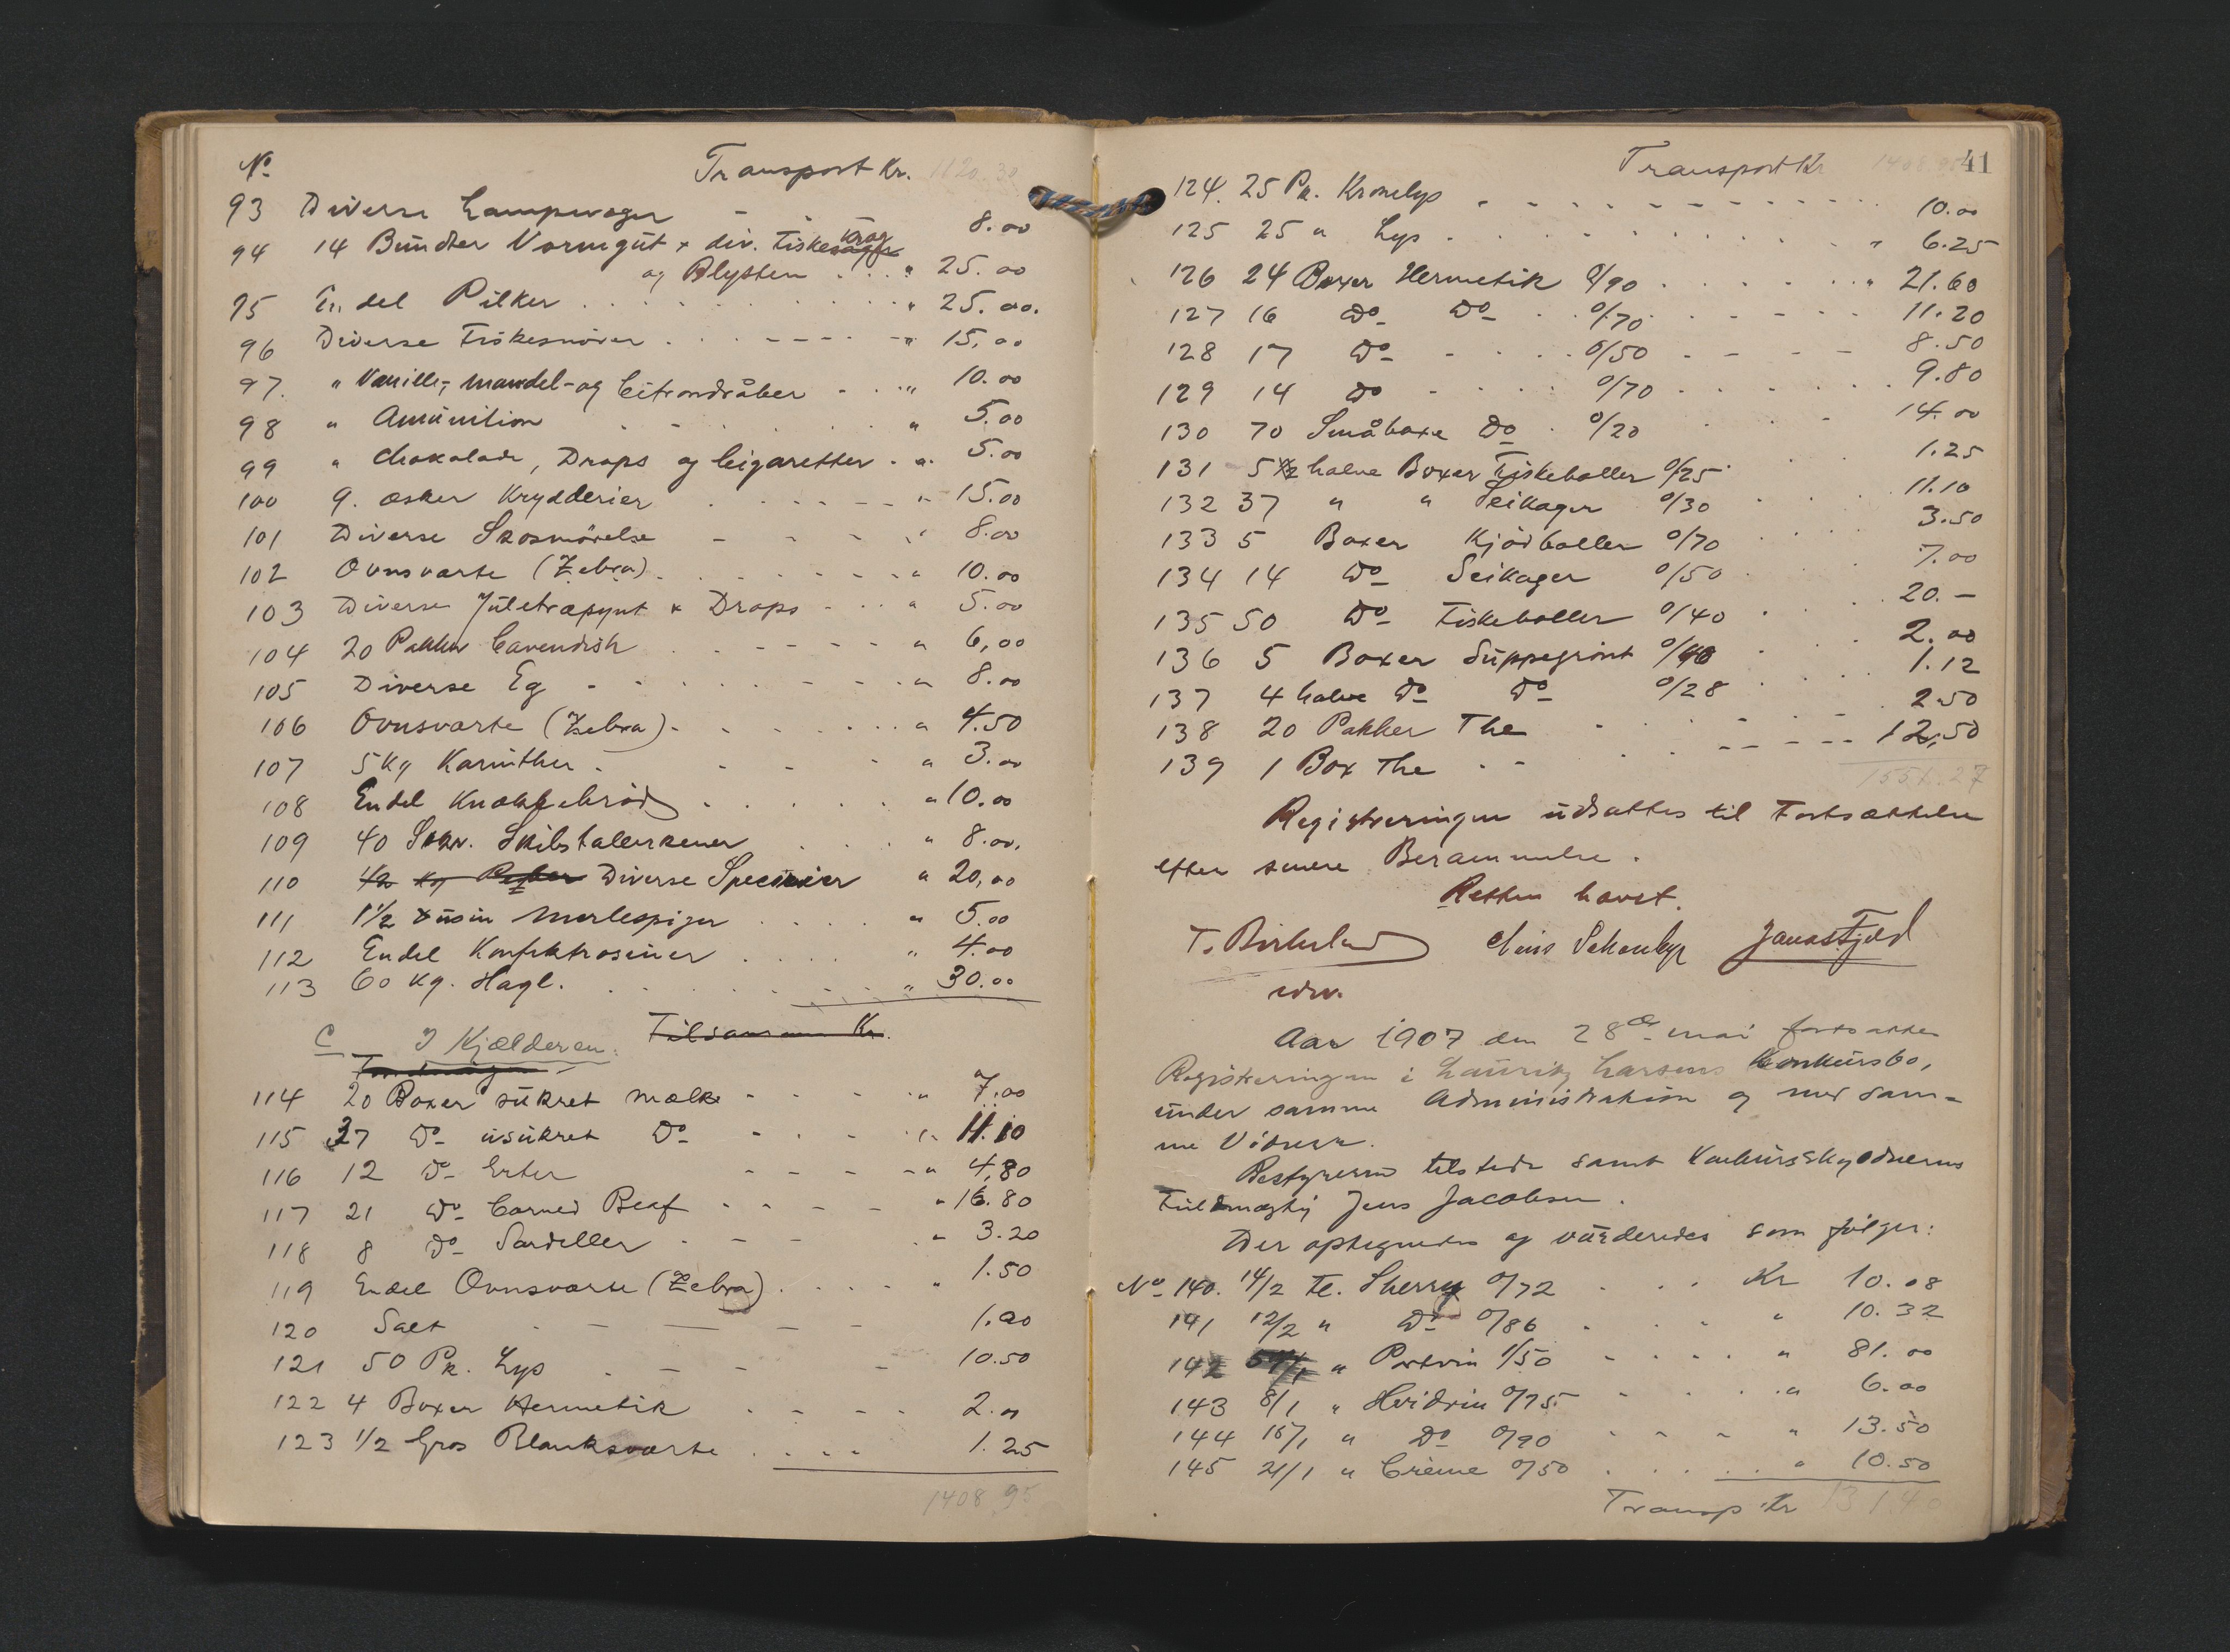 No Transport Kr. 1120.30
93 Diverse Lampevæger - - 8.00
94 14 Bundter Vormgut & div. Fiskekrog
og Blysten . . . " 25.00
95 En del Pilker . . . " 25.00.
96 Diverse Fiskesnører . . . " 15,00
97. " Vanille-, Mandel- og Citrondråber . . " 10.00
98 " Amunition . . . " 5.00
99 " Chokolade, Drops og Cigaretter . " 5.00
100 9. æsker Krydderier . . . " 15.00
101 Diverse Skosmørelse - - - " 8.00
102 Ovnsværte (Zebra) . . . " 10.00
103 Diverse Juletræpynt & Drops . . . " 5.00
104 20 Pakker Cavendish . . . " 6,00
105 Diverse Eg . . . " 8.00
106 Ovnsværte (Zebra) . . . " 4.50
107 5 Kg Karinther . . . " 3.00
108 Endel Knækkebrød . . . " 10.00
109 40 Skibstallerkener . . . " 8.00.
110 1/2 Kg Peper Diverse Specerier " 20,00
111 1 1/2 Dusin Merlespiger . . . " 5.00
112 Endel Konfektrosiner . . . " 4.00
113 60 Kg. Hagl. . . . " 30.00
Tilsammen Kr.
C I Kjælderen.
114 20 Boxer sukret Mælk - - - " 7.00
115 37 Do usukret Do - - - " 11.10
116 12 Do Erter - - - " 4,80
117 21 Do Corned Beaf - - - " 16.80
118 8 Do Sardeller - - - " 3.20
119 Endel Ovnsværte (Zebra) . . . " 1.50
120 Salt - - - 1.00
121 50 Pk. Lys - - - 10.50
122 4 Boxer Hermetik - - - 2.00
123 1/2 Gros Blanksværte . . . 1.25
1408.95
41
Transport Kr 1408.95
124. 25 Pk. Kronelys . . . 10.00
125 25 " Lys . . . " 6.25
126 24 Boxer Hermetik 0/90 . . . " 21.60
127 16 Do Do . . 0/70 . . . 11.20
128 17 Do - . . . 0/50 - - - 8.50
129 14 Do - . . . 0/70 . . . 9.80
130 70 Småboxe Do . 0/20 . . . 14.00
131 5 halve Boxer Fiskeboller 0/25 . . . 1.25
132 37 " " Seikager 0/30 . . . 11.10
133 5 Boxer Kjødboller 0/70 . . . 3.50
134 14 Do Seikager 0/50 . . . 7.00
135 50 Do Fiskeboller 0/40 . . . 20.-
136 5 Boxer Suppegrønt 0/40 . . . 2.00
137 4 halve Do Do 0/28 . . . 1.12
138 20 Pakker The . . . 2.50
139 1 Box The . . . 12,50
1551.27
Registreringen udsattes til Fortsættelse
efter senere Berammelse.
Retten hævet.
T. Birkeland Jonas Fjeld
edsv.
Aar 1907 den 28de mai fortsattes
Registreringen i Lauritz Larsens Konkursbo,
under samme Administration og med sam=
me Vidner.
Bestyreren tilstede samt Konkursskyldnerens
Fuldmægtig Jens Jacobsen.
Der optegnedes og vurderedes som følger:
No 140. 14/2 Fl. Sherry 0/72 . . . Kr 10.08
141 12/2 " Do 0/86 . . . " 10.32
142 54/1 " Portvin 1/50 . . . " 81.00
143 8/1 " Hvidvin 0/75 . . . " 6.00
144 15/1 " Do 0/90 . . . " 13.50
145 21/1 " Crème 0/50 . . . " 10.50
Transp Kr 131.40